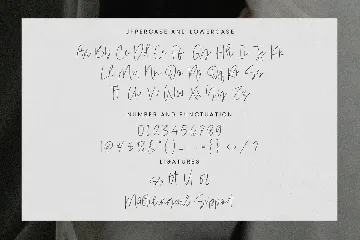 UPPERCASE AND LOWERCASE
Aa Bb Cc Dd Ee Ff Gg Hh Ii Jj Kk
Ll Mm Nn Oo Pp Qq Rr Ss
Tt Uu Vv Ww Xx Yy Zz
NUMBER AND PUNCTUATION
0123456789
LIGATURES
Multilingual Support